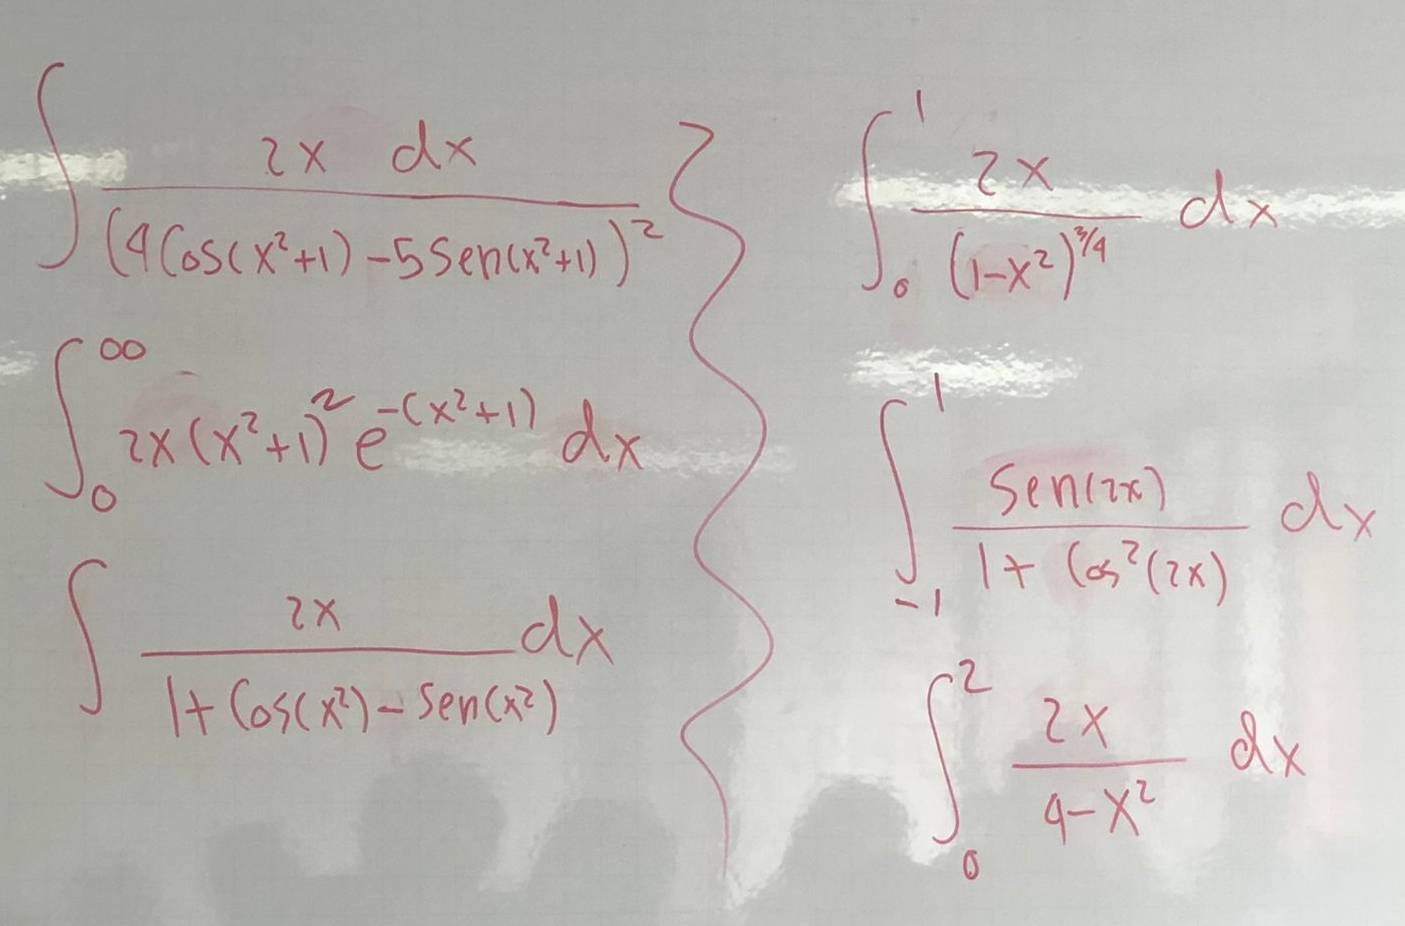 ∫ 2x dx / (4Cos(x²+1) - 5Sen(x²+1))²
∫₀^∞ 2x(x²+1)² e^(-(x²+1)) dx
∫ 2x / (1 + Cos(x²) - Sen(x²)) dx
∫₀¹ 2x / (1-x²)^(3/4) dx
∫₋₁¹ Sen(2x) / (1 + Cos²(2x)) dx
∫₀² 2x / (4-x²) dx